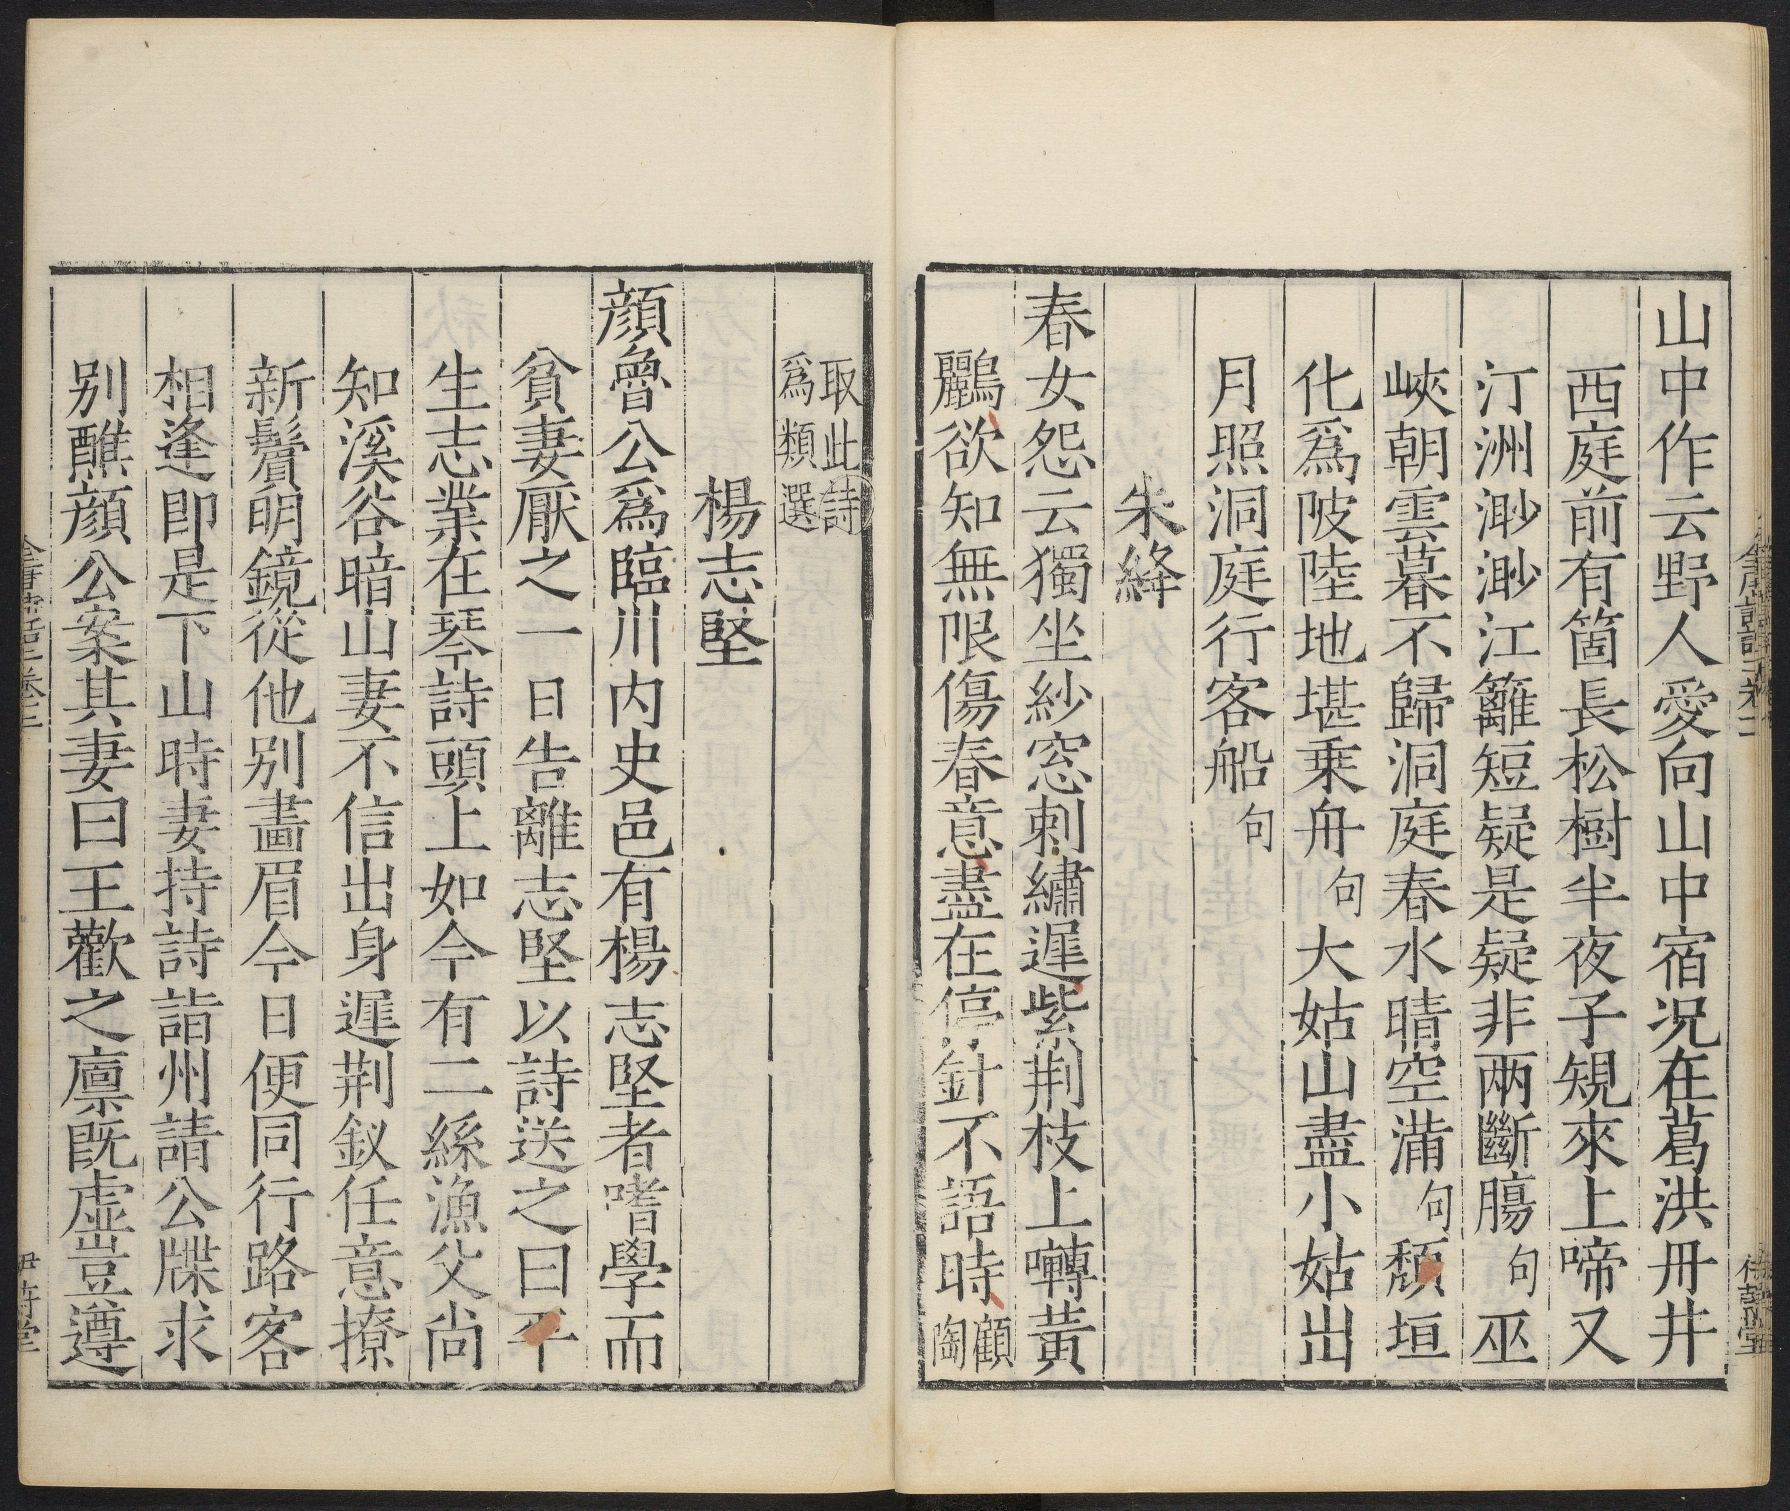 山中作云野人愛向山中宿况在葛洪丹井
西庭前有箇長松樹半夜子規來上啼又
汀洲渺渺江籬短疑是疑非兩斷腸句巫
峽朝雲暮不歸洞庭春水晴空滿句頽垣
化爲陂陸地堪乗舟句大姑山盡小姑出
月照洞庭行客船句
朱絳
春女怨云獨坐紗窓刺繡遲紫荆枝上囀黃
鸝欲知無限傷春意盡在停針不語時顧
陶
取此詩
爲類選
楊志堅
顔魯公爲臨川内史邑有楊志堅者嗜學而
貧妻厭之一日告離志堅以詩送之曰平
生志業在琴詩頭上如今有二絲漁父尚
知溪谷暗山妻不信出身遲荆釵任意撩
新鬢明鏡從他别畫眉今日便同行路客
相逢即是下山時妻持詩詣州請公牒求
别醮顔公案其妻曰王歡之廩既虚豈遵